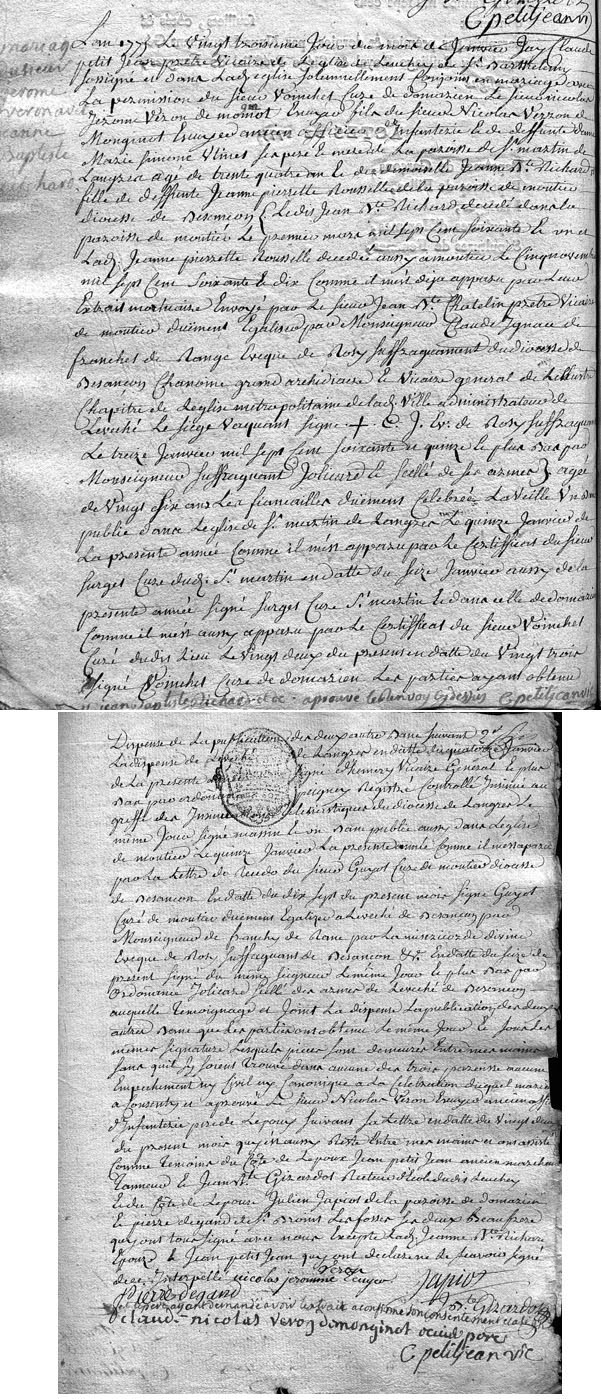 C petitjean
mariage
monsieur
jerome
veron avec
jeanne
Baptiste
Richard
L'an 1775 Le Vingt troisieme Jour du mois de Janvier Jay Claude
petit Jean pretre Vicaire de L'eglise de Leuchey de St Barthelemy
soussigné et dans Ladt eglise solennellement Conjoins en mariage avec
La permission du sieur Voinchet Curé de domarien Le sieur nicolas
Jerome Veron de Ecuyer fils du sieur Nicolas Verron de
Monginot Ecuyer ancien officier d'Infanterie et de deffunte dame
Marie Simone Vines ses pere et mere de La paroisse de St martin de
Langres age de trente quatre an et de demoiselle Jeanne Bte Richard
fille de deffunte Jeanne pierrette Rousselle de La paroisse de moutier
diocese de Besancon Ledit Jean Bte Richard decedé dans la
paroisse de moutié Le premier mars mil sept Cent soixante et un et
Ladt Jeanne pierrette Rousselle decedée aussy a moutier Le Cinq novembre
mil sept Cent Soixante et dix Comme il m'est deja apparu par Leur
Extrait mortuaire Envoyé par Le sieur Jean Bte Chatelin pretre Vicaire
de moutier duement Legalisés par Monseigneur Claude Ignace de
franchet de Range Eveque de Rosy Suffragquant du diocese de
Besancon Chanoine grand archidiacre et Vicaire general de L'illustre
Chapitre de Leglise metropolitaine de Ladt Ville administrateur de
Leveché Le siege Vaquant signé + C. J. Ev: de Rosy suffragquant
Le treize Janvier mil sept Cent soixante et quinze et plus Bas par
Monseigneur Suffragquant Jolicard et scellé de ses armes agée
de Vingt six ans Les fiancailles duement Celebrées La Veille Un Ban
publié dans Leglise de St martin de Langres Le quinze Janvier de
La presente année Comme il m'est apparu par Le Certifficat du sieur
Surget Curé dudt St martin en datte du seize Janvier aussy de la
presente année signé Surget Curé St martin et dans celle de domarien
Comme il m'est aussy apparu par Le Certifficat du sieur Voinchet
Curé dudit Lieu Le Vingt deux du present en datte du Vingt trois
signé Voinchet Curé de domarien Les parties ayant obtenu
jean baptiste Richard et de - aprouvé Le Renvoy cy dessus C petitjean vic
Dispense de La publication des deux autre Bans suivant
La dispense de Leveché de Langres en datte du quatorze Janvier
de La presente signé dhemery Vicaire General et plus
Bas par ordonnance Registré Controllé Insinué au
greffe des Insinuations Ecclesiastiques du diocese de Langres Le
même Jour signé massin et un Ban publié aussy dans Leglise
de moutier Le quinze Janvier La presente année Comme il m'est aparu
par La Lettre de Recedo du sieur Guyot Curé de moutier diocese
de Besancon En datte du dix sept du present mois signé Guyot
Curé de moutier duement Legalizé a Leveché de Besancon par
Monseigneur de franchet de Rane par La misericorde divine
Eveque de Rosy Suffragquant de Besancon &c. En datte du seize de
present signé du même seigneur Le même Jour et plus Bas par
Ordonance Jolicard scellé des armes de Leveché de Besancon
auquelle temoignage est Joint La dispense de La publication des deux
autres Bans que Les parties ont obtenu Le même Jour et sous Les
memes signature Lesquels pieces sont demeurés Entre mes mains
sans qu'il se soient trouvé dans aucune des trois paroisse aucun
Empechement ny Civil ny Canonique a La Celebration duquel mariage
a Consenty et aprouvé Le sieur Nicolas Veron Ecuyer ancien officier
d'Infanterie pere de Lepoux suivant sa Lettre en datte du Vingt deux
du present mois qui est aussy Resté Entre mes mains et ont assisté
Comme temoins du Côte de Lepoux Jean petit Jean ancien marchand
tanneur et Jean Bte Girardot Recteur d'Ecole dudit Leuchey
Et du Côte de Lepouse Julien Japiot de La paroisse de domarien
Et pierre degand de St Broins Les fosses ses deux Beaufrere
qui ont tous signé avec nous Excepté Ladt Jeanne Bte Richard
Epouze et Jean petit Jean qui ont declaré ne scavoir signé
de ce Interpellé nicolas jeromme veron Ecuyer Japiot
Pierre degand J. Bte Girardot
claude nicolas veron de monginot
C petitjean vic